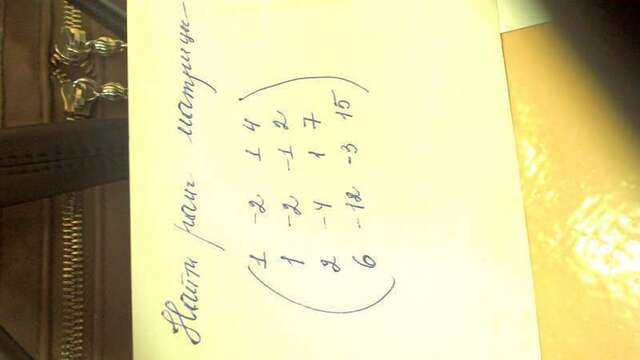 Найти ранг матрицы
1 -2 1 4
1 -2 -1 2
2 -4 1 7
6 -12 -3 15